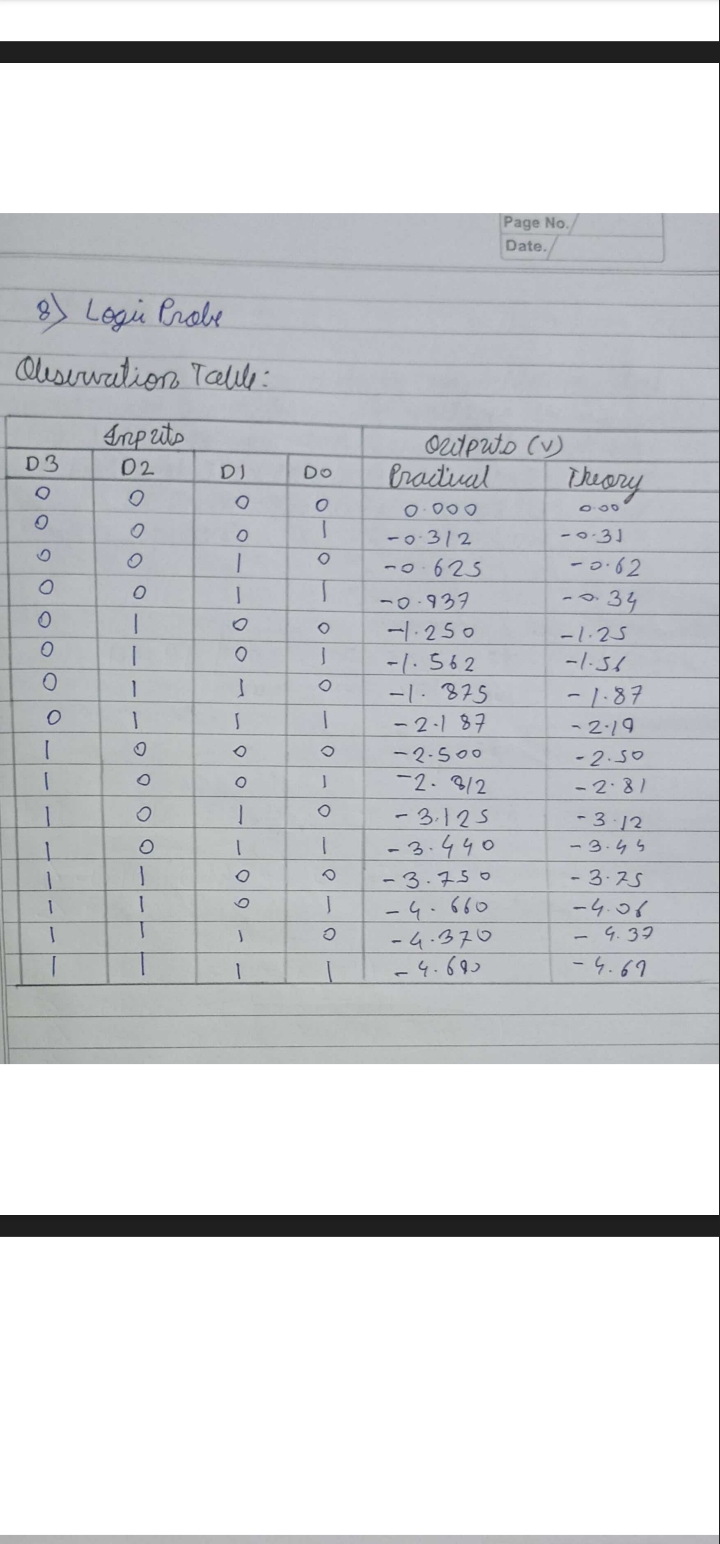 Page No.
Date.
8) Logic Probe
Observation Table:
Inputs Outputs (V)
D3 D2 D1 D0 Practical Theory
0 0 0 0 0.000 0.00
0 0 0 1 -0.312 -0.31
0 0 1 0 -0.625 -0.62
0 0 1 1 -0.937 -0.34
0 1 0 0 -1.250 -1.25
0 1 0 1 -1.562 -1.56
0 1 1 0 -1.875 -1.87
0 1 1 1 -2.187 -2.19
1 0 0 0 -2.500 -2.50
1 0 0 1 -2.812 -2.81
1 0 1 0 -3.125 -3.12
1 0 1 1 -3.440 -3.44
1 1 0 0 -3.750 -3.75
1 1 0 1 -4.660 -4.06
1 1 1 0 -4.370 -4.37
1 1 1 1 -4.690 -4.69